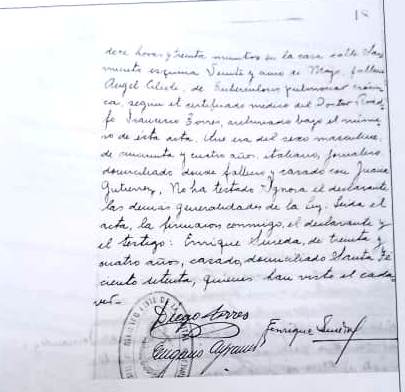 18
doce horas y treinta minutos en la casa calle San
esquina Veinte y cinco de Mayo, falleció
Angel Celeste, de tuberculosis pulmonar cróni
ca, según el certificado médico del Doctor
Francisco Torres, archivado bajo el núme
ro de ésta acta. Que era del sexo masculino,
de cincuenta y cuatro años, italiano, jornalero,
domiciliado donde falleció y casado con Juana
Gutierrez, No ha testado. Ignora el declarante
las demás generalidades de la ley. Leida el
acta, la firmaron conmigo, el declarante y
el testigo: Enrique Sureda, de treinta y
cuatro años, casado, domiciliado Santa Fé
ciento setenta, quienes han visto el cadá
ver.
Diego Torres
Enrique Sureda